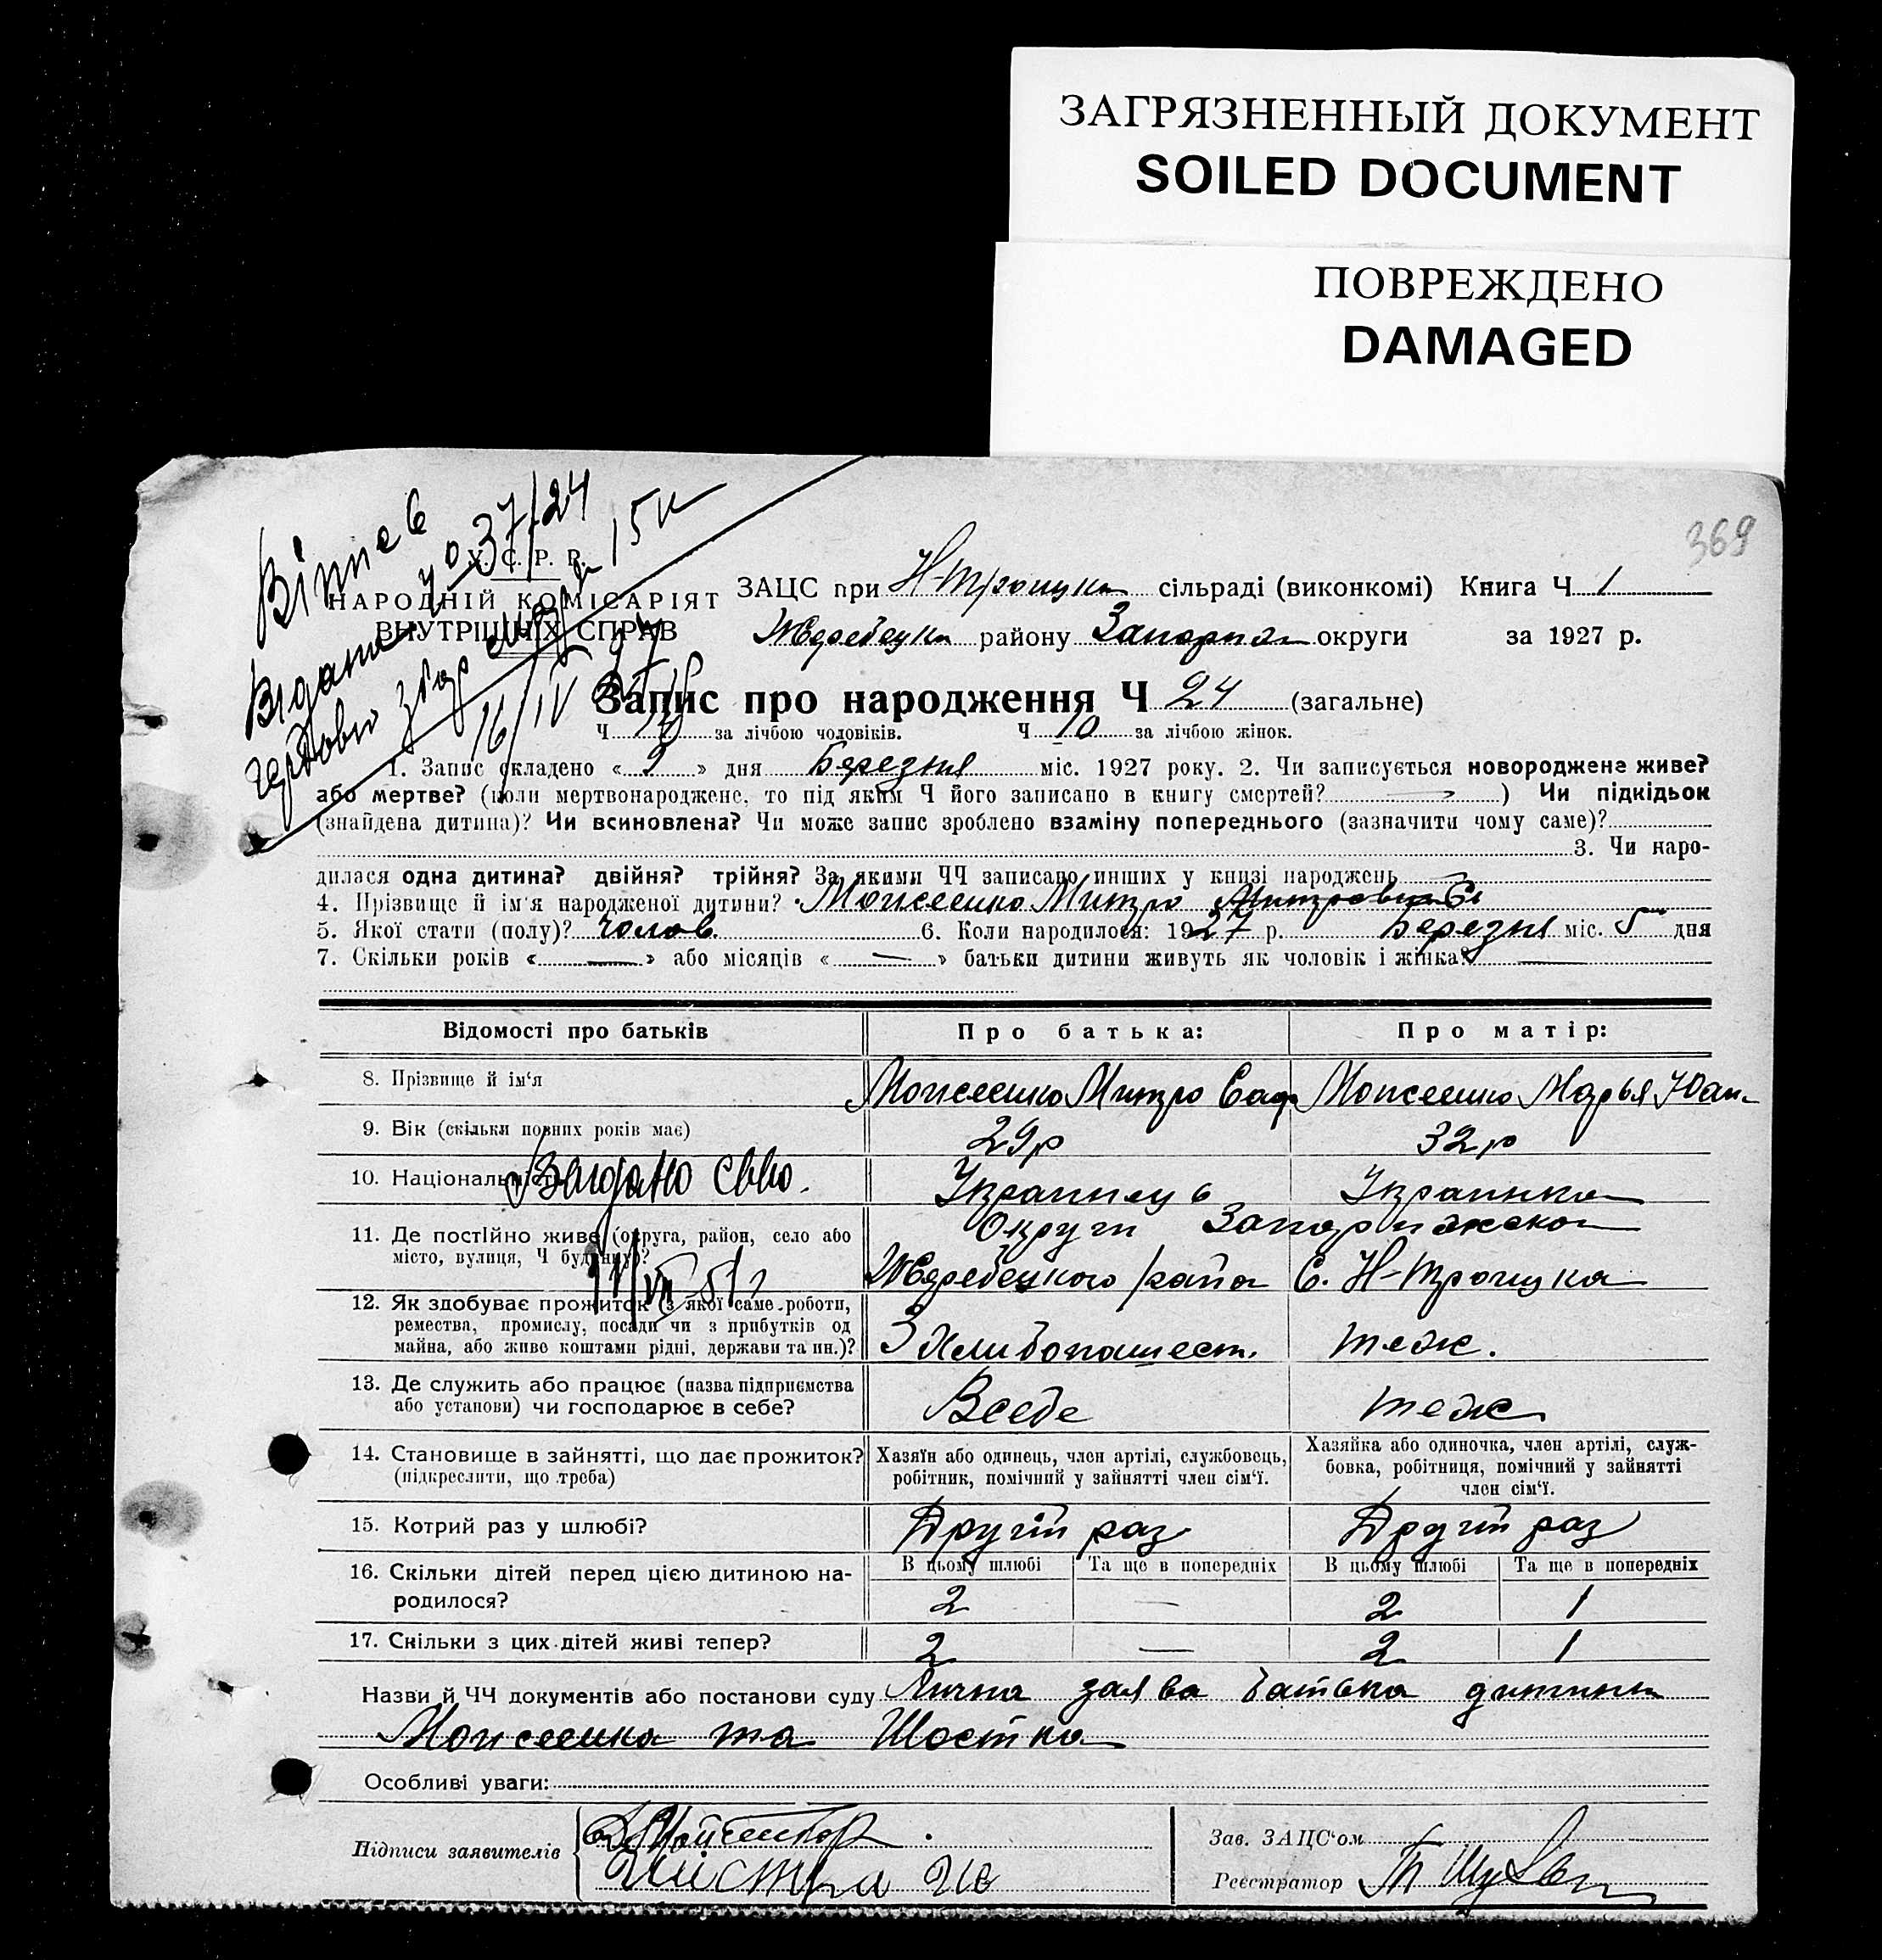 ЗАГРЯЗНЕННЫЙ ДОКУМЕНТ
SOILED DOCUMENT
ПОВРЕЖДЕНО
DAMAGED
369
37/24
У. С. Р. Р.
НАРОДНІЙ КОМІСАРІЯТ
ВНУТРІШНІХ СПРАВ
16/IV
ЗАЦС при Н-Троицька сільраді (виконкомі) Книга Ч 1
Жеребецька району округи за 1927 р.
Запис про народження Ч 24 (загальне)
Ч 14 за лічбою чоловіків. Ч 10 за лічбою жінок.
1. Запис складено « 9 » дня Березня міс. 1927 року. 2. Чи записується новороджене живе?
або мертве? (коли мертвонароджене, то під яким Ч його записано в книгу смертей? ) Чи підкідьок
(знайдена дитина)? Чи всиновлена? Чи може запис зроблено взаміну попереднього (зазначити чому саме)?
3. Чи наро-
дилася одна дитина? двійня? трійня? За якими ЧЧ записано инших у книзі народжень
4. Прізвище й ім'я народженої дитини? Моисеенко Митро
5. Якої стати (полу)? Чолов. 6. Коли народилося: 1927 р. Березня міс. 5 дня
7. Скільки років « — » або місяців « — » батьки дитини живуть як чоловік і жінка? —
Відомості про батьків Про батька: Про матір:
8. Прізвище й ім'я Моисеенко Митро Моисеенко Марья
9. Вік (скільки повних років має) 29 р 32 р
10. Національність Украинець Украинка
11. Де постійно живе (округа, район, село або Округи Запорижской
місто, вулиця, Ч будинку)? Жеребецкого района С. Н-Троицка
12. Як здобуває прожиток (з якої саме роботи,
ремества, промислу, посади чи з прибутків од
майна, або живе коштами рідні, держави та ин.)? З Хлибопашест. теж.
13. Де служить або працює (назва підприємства
або установи) чи господарює в себе? Всебе теж
14. Становище в зайнятті, що дає прожиток? Хазяїн або одинець, член артілі, службовець, Хазяйка або одиночка, член артілі, служ-
(підкреслити, що треба) робітник, помічний у зайнятті член сім'ї. бовка, робітниця, помічний у зайнятті
член сім'ї.
15. Котрий раз у шлюбі? Другій раз Другий раз
В цьому шлюбі Та ще в попередніх В цьому шлюбі Та ще в попередніх
16. Скільки дітей перед цією дитиною на-
родилося? 2 — 2 1
17. Скільки з цих дітей живі тепер? 2 — 2 1
Назви й ЧЧ документів або постанови суду Лична заява батька дитини
Моисеенка та Шостка
Особливі уваги:
Підписи заявителів
Зав. ЗАЦС'ом
Реєстратор